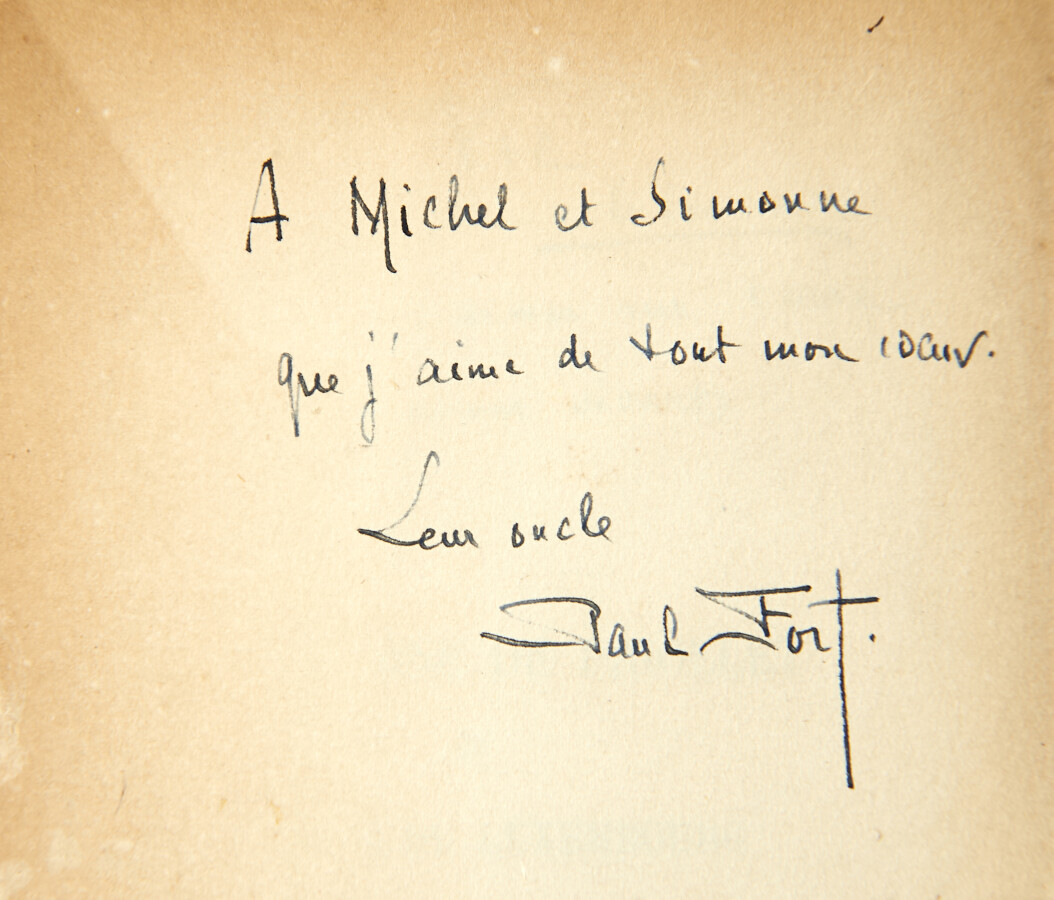 A Michel et Simonne
que j'aime de tout mon cœur.
Leur oncle
Paul Fort.